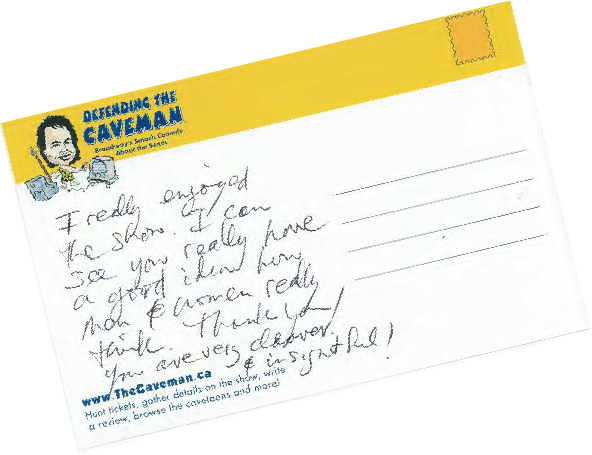 DEFENDING THE
CAVEMAN
Broadway's Smash Comedy
About the Sexes
I really enjoyed
the show. I can
see you really have
a good idea how
men & women really
think. Thank you!
You are very cleaver
& insightful!
www.TheCaveman.ca
Hunt tickets, gather details on the show, write
a review, browse the cavetoons and more!